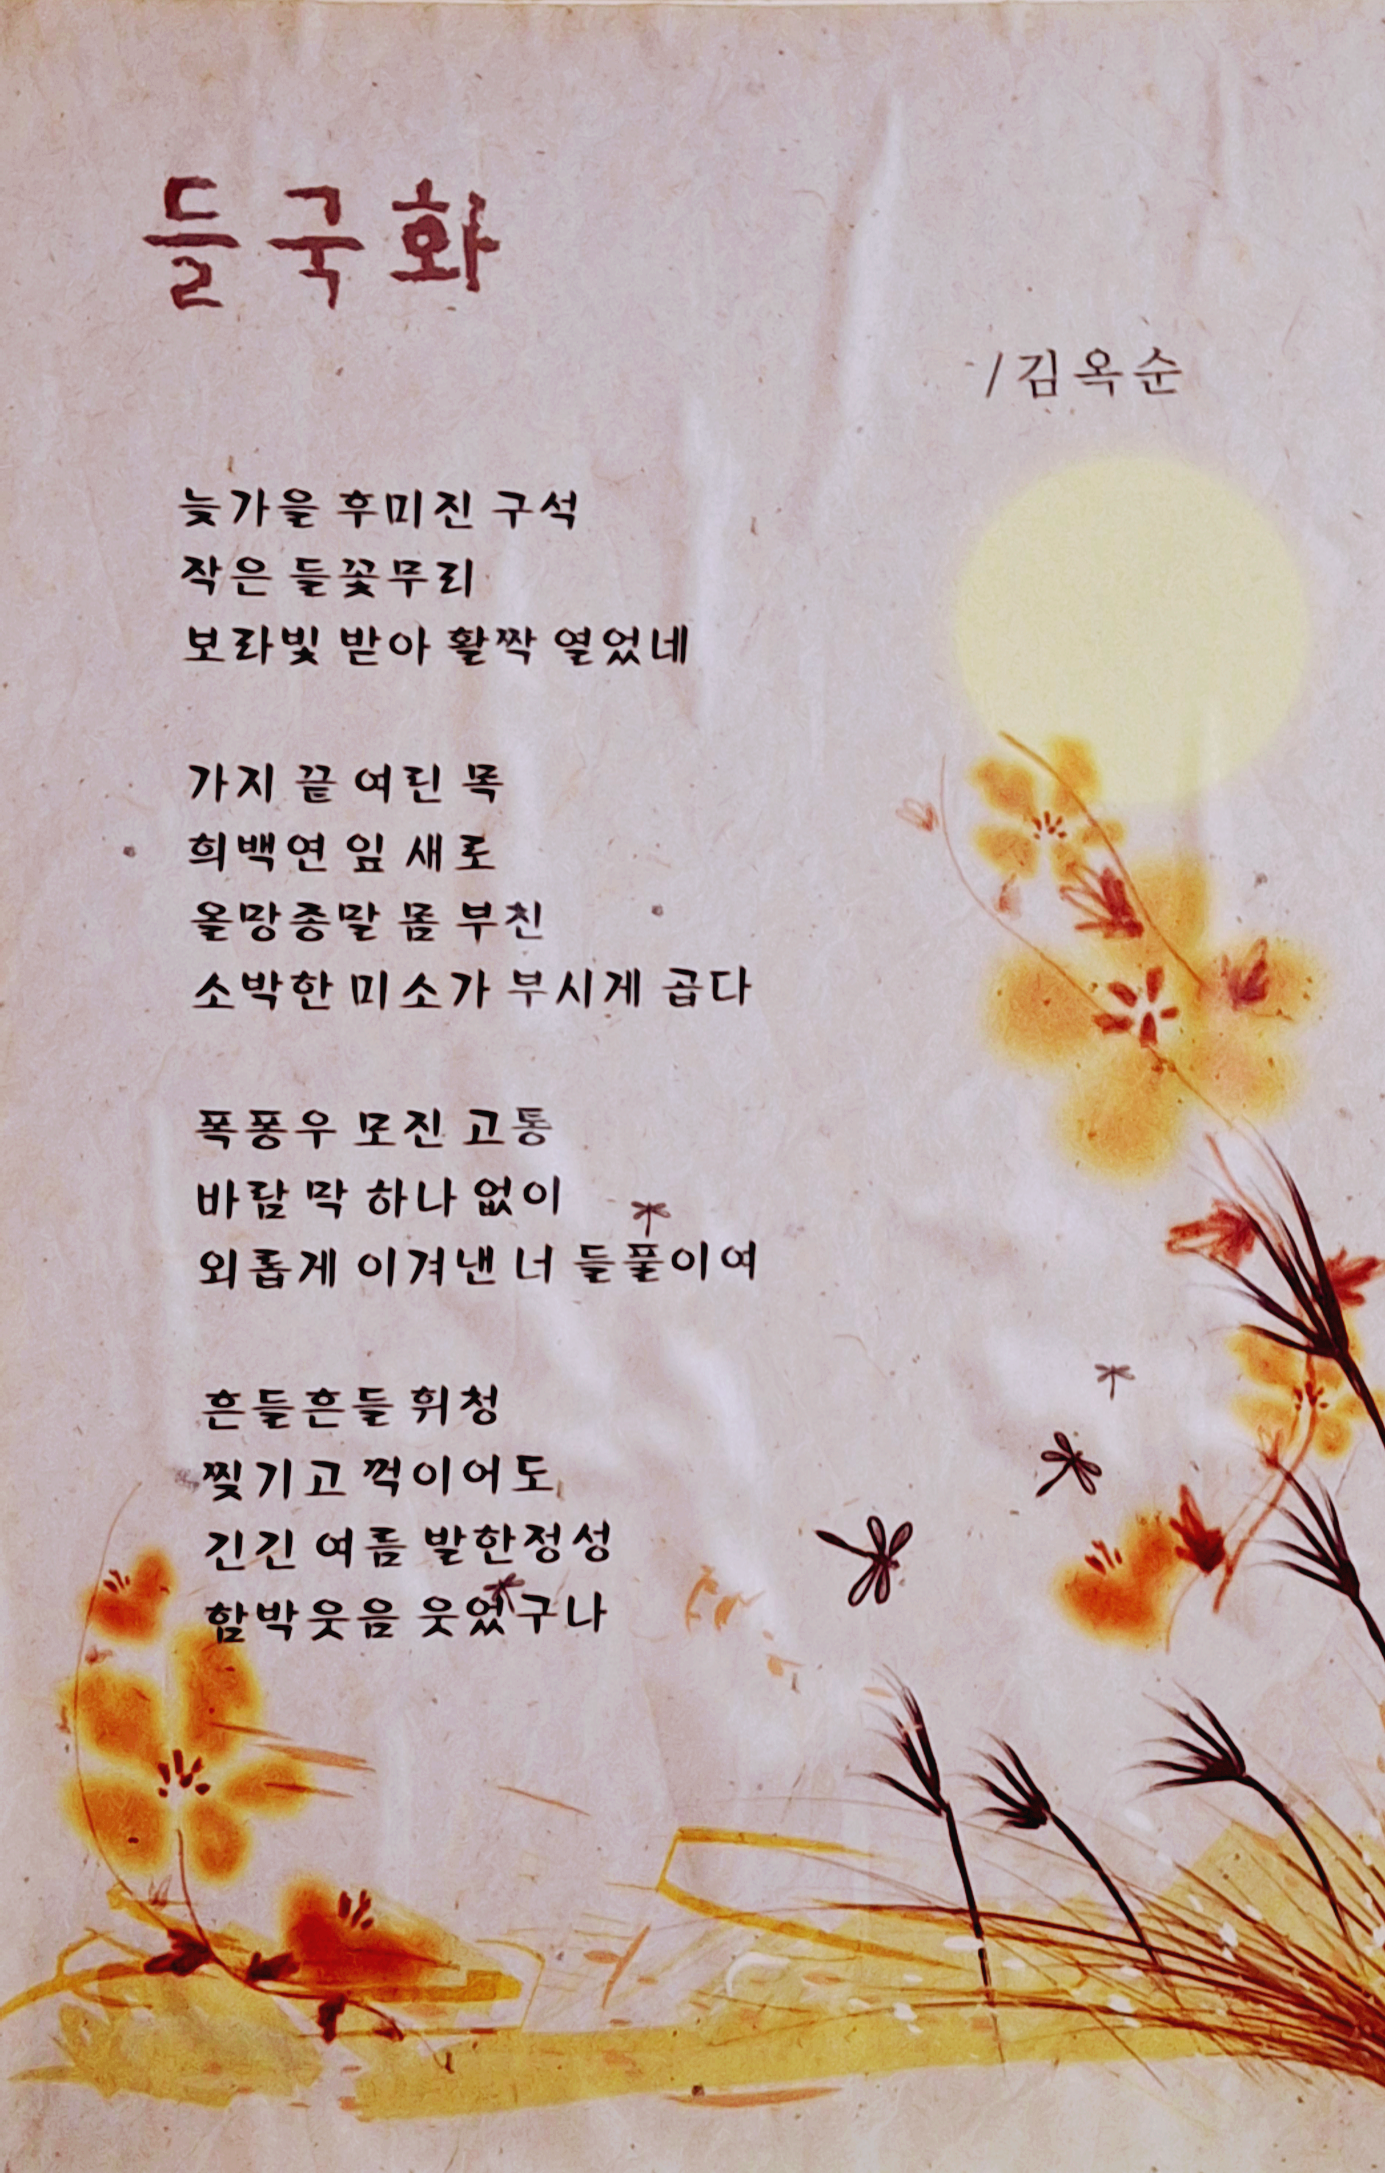 들국화
/김옥순
늦가을 후미진 구석
작은 들꽃무리
보라빛 받아 활짝 열었네
가지 끝 여린 목
희백연 잎 새로
올망종말 몸 부친
소박한 미소가 부시게 곱다
폭풍우 모진 고통
바람 막 하나 없이
외롭게 이겨낸 너 들풀이여
흔들흔들 휘청
찢기고 꺽이어도
긴긴 여름 발한정성
함박웃음 웃었구나